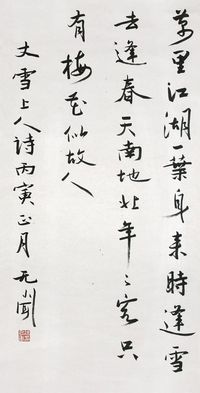 萬里江湖一葉身来時逢雪
去逢春天南地北年〻客只
有梅花似故人
丈雪上人詩丙寅正月无聞